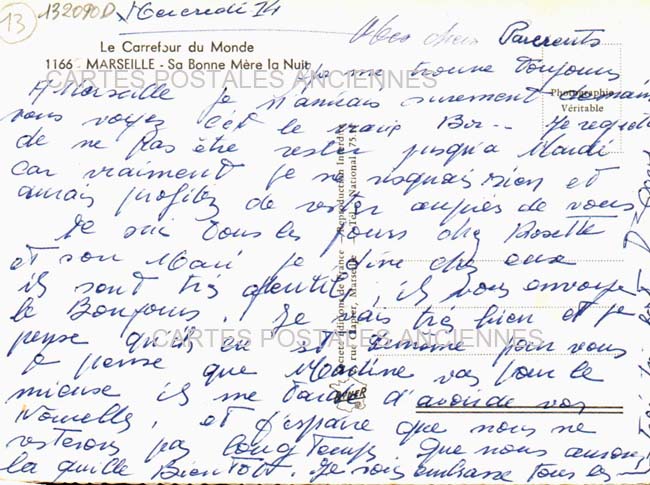 13
132090D
Mercredi 14
Mes chers Parents
Le Carrefour du Monde
1166 - MARSEILLE - Sa Bonne Mère la Nuit
CARTES POSTALES ANCIENNES
Photographie
Véritable
me trouve toujours
A Marseille je surement
vous voyez c'est le Je regrette
de ne pas être rester jusqu'a Mardi
car vraiment je ne risquais rien et
aurais profitez de rester auprès de vous
Je suis tous les jours chez Rosette
et son Mari je dine chez eux
ils sont très gentil, ils vous envoye
le Bonjour. Je vais très bien et je
pense qu'il en est de même pour vous
CARTES POSTALES ANCIENNES
je pense que Martine vas pour le
mieux il me tarde d'avoir de vos
Nouvelles, et j'espère que nous ne
resterons pas longtemps que nous aurons
la quille Bientôt. Je vous embrasse tous les
Société Editions de France
rue Clapier, Marseille
Reproduction Interdite
Tél. National 75